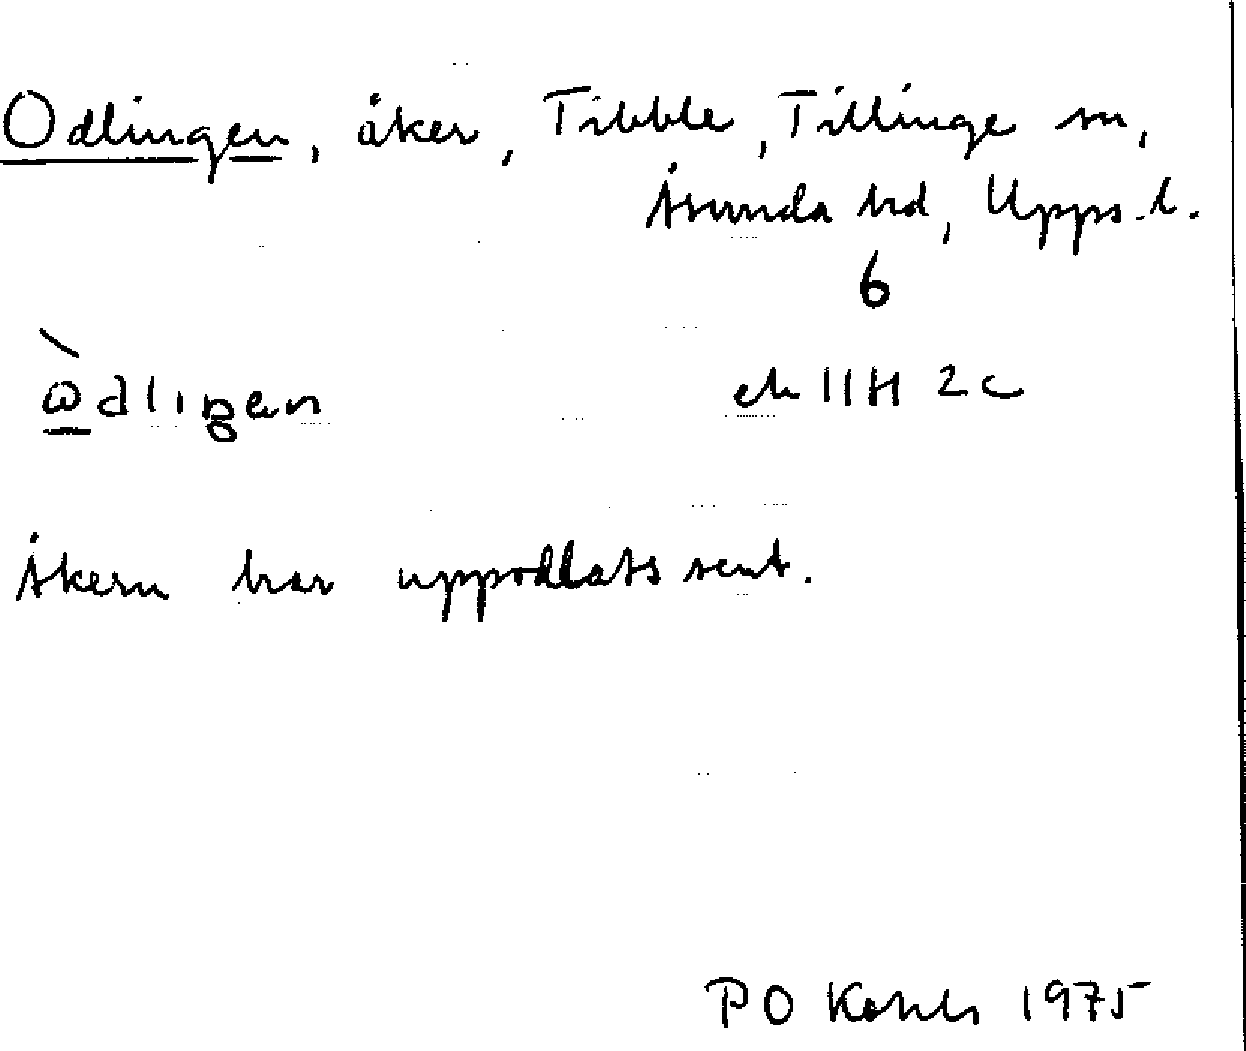 Odlingen, åker, Tibble, Tillinge sn,
Åsunda hd, Upps. l.
6
ek 11H 2c
Åkern har uppodlats sent.
PO 1975